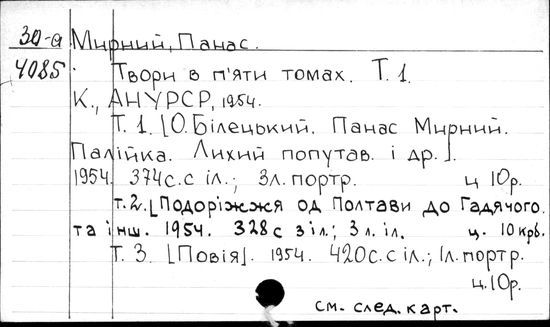 30-а Мирний, Панас.
4085 Твори в п'яти томах. Т. 1.
К., АНУРСР, 1954.
Т. 1. [О. Білецький. Панас Мирний.
Палійка. Лихий попутав. і др.].
1954. 374с. с іл.; 3л. портр. ц 10р.
т. 2. [Подоріжжя од Полтави до Гадячого
та інш. 1954. 328с з іл.; 3 л. іл. ц. 10 крб.
Т. 3. [Повія]. 1954. 420с. с іл.; 1л. портр.
ц. 10р.
см. след. карт.